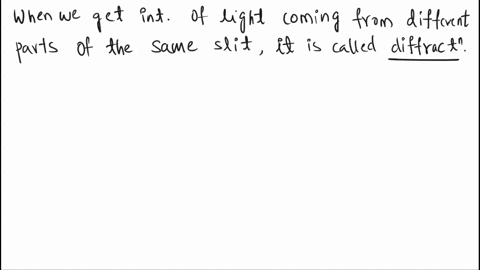 When we get int. of light coming from different
parts of the same slit, it is called diffractⁿ.